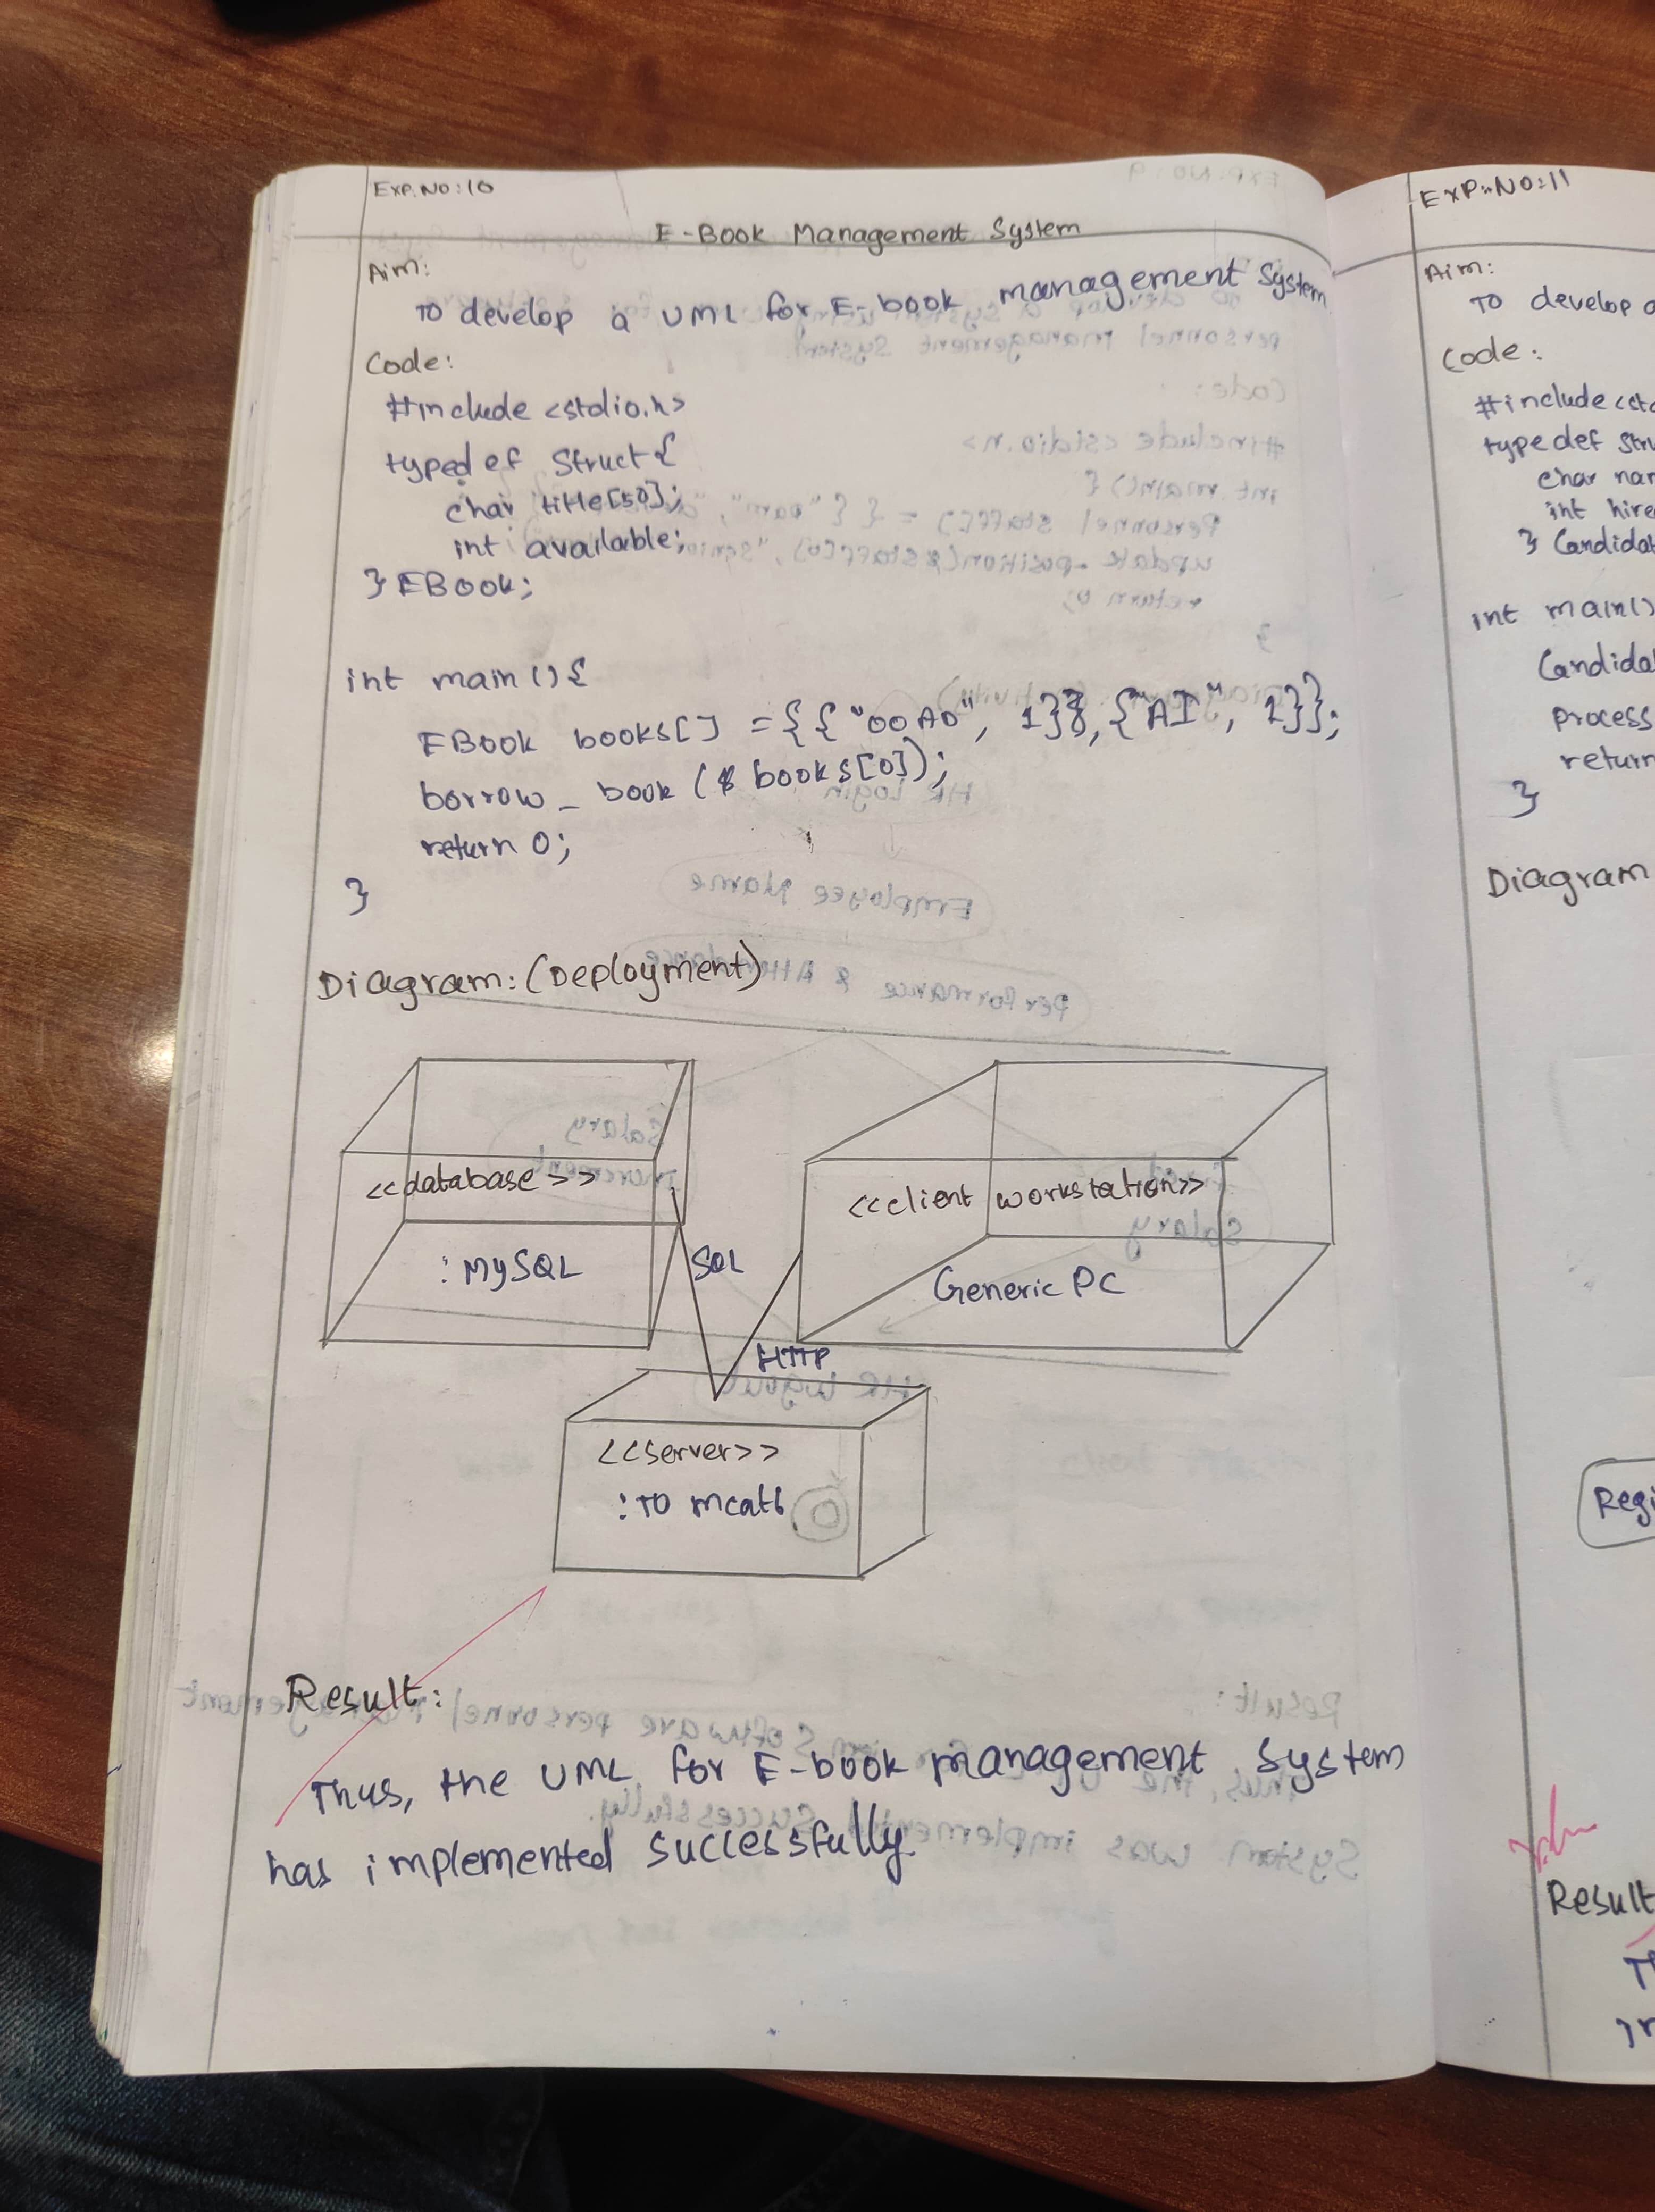 EXP.NO:10
E-Book Management System
Aim:
To develop a UML for E-book management System
Code:
#include <stdio.h>
typedef Struct {
char title[50];
int available;
} EBook;
int main () {
EBook books[] = { { "OOAD", 1}}, {"AI", 1}};
borrow_book (& books[0]);
return 0;
}
Diagram: (Deployment)
<<database>>
: MySQL
SQL
<<client workstation>>
Generic PC
HTTP
<<server>>
: TO mcat6
Result:
Thus, the UML for E-book management System
has implemented successfully
EXP.NO:11
Aim:
To develop a
Code:
#include <st
typedef Str
char nar
int hire
} Candidat
int main()
Candida
process
return
}
Diagram
Regi
Result